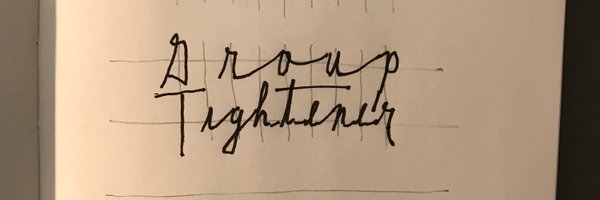 Group
Tightener